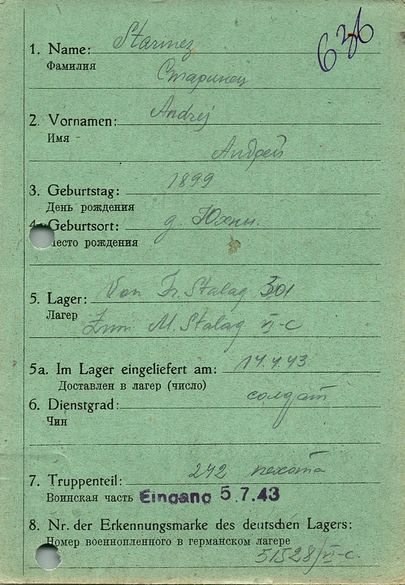 636
1. Name: Starinez
Фамилия
Старинец
2. Vornamen: Andrej
Имя
Андрей
3. Geburtstag: 1899
День рождения
4. Geburtsort: д. Юхни.
Место рождения
5. Lager: Von Fr. Stalag 301
Лагер Zum M. Stalag VI-C
5a. Im Lager eingeliefert am: 17.4.43
Доставлен в лагер (число)
6. Dienstgrad: солдат
Чин
7. Truppenteil: 242 пехота
Воинская часть Eingang 5.7.43
8. Nr. der Erkennungsmarke des deutschen Lagers:
Номер военнопленного в германском лагере
51528/VI-C.